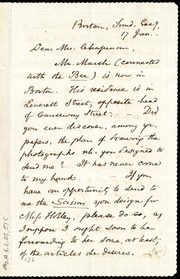 Boston, Sund. Eveg.
17 Jan.
Dear Mrs. Chapman:
Mr. Marsh (connected
with the Bee) is now in
Boston. His residence is in
Leverett Street, opposite head
of Causeway Street. Did
you ever discover, among your
papers, the plan of framing the
photographs wh. you designed to
send me? It has never come
to my hand. If you
have an opportunity to send to
me the Scissors you design for
Miss Holley, please do so, as
I suppose I ought soon to be
forwarding to her some, at least,
of the articles she desires.